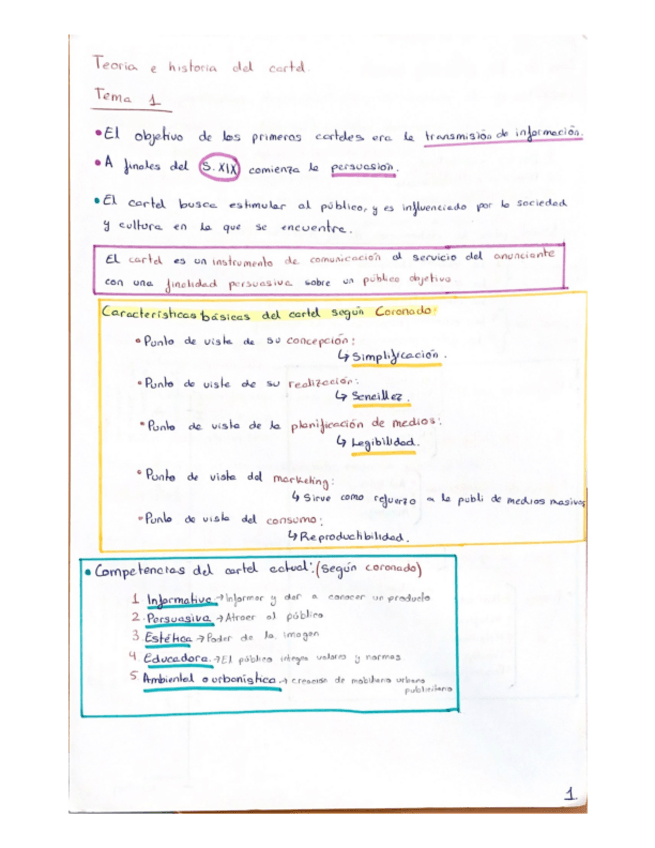 Teoria e historia del cartel.
Tema 1
• El objetivo de los primeros carteles era la transmisión de información.
• A finales del S.XIX comienza la persuasión.
• El cartel busca estimular al público, y es influenciado por la sociedad
y cultura en la que se encuentre.
El cartel es un instrumento de comunicación al servicio del anunciante
con una finalidad persuasiva sobre un público objetivo.
Características básicas del cartel según Coronado:
• Punto de vista de su concepción:
↳ Simplificación.
• Punto de vista de su realización:
↳ Sencillez.
• Punto de vista de la planificación de medios:
↳ Legibilidad.
• Punto de vista del marketing:
↳ Sirve como refuerzo a la publi de medios masivos
- Punto de vista del consumo:
↳ Reproductibilidad.
• Competencias del cartel actual: (según coronado)
1 Informativa → Informar y dar a conocer un producto
2. Persuasiva → Atraer al público
3 Estética → Poder de la imagen
4 Educadora. → El público integra valores y normas
5. Ambiental o urbanística → creación de mobiliario urbano
publicitario
1